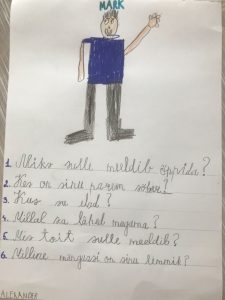 MARK
1. Miks sulle meeldib õppida?
2. Kes on sinu parim sõber?
3. Kus sa elad?
4. Millal sa lähed magama?
5. Mis toit sulle meeldib?
6. Milline mänguasi on sinu lemmik?
ALEXANDER